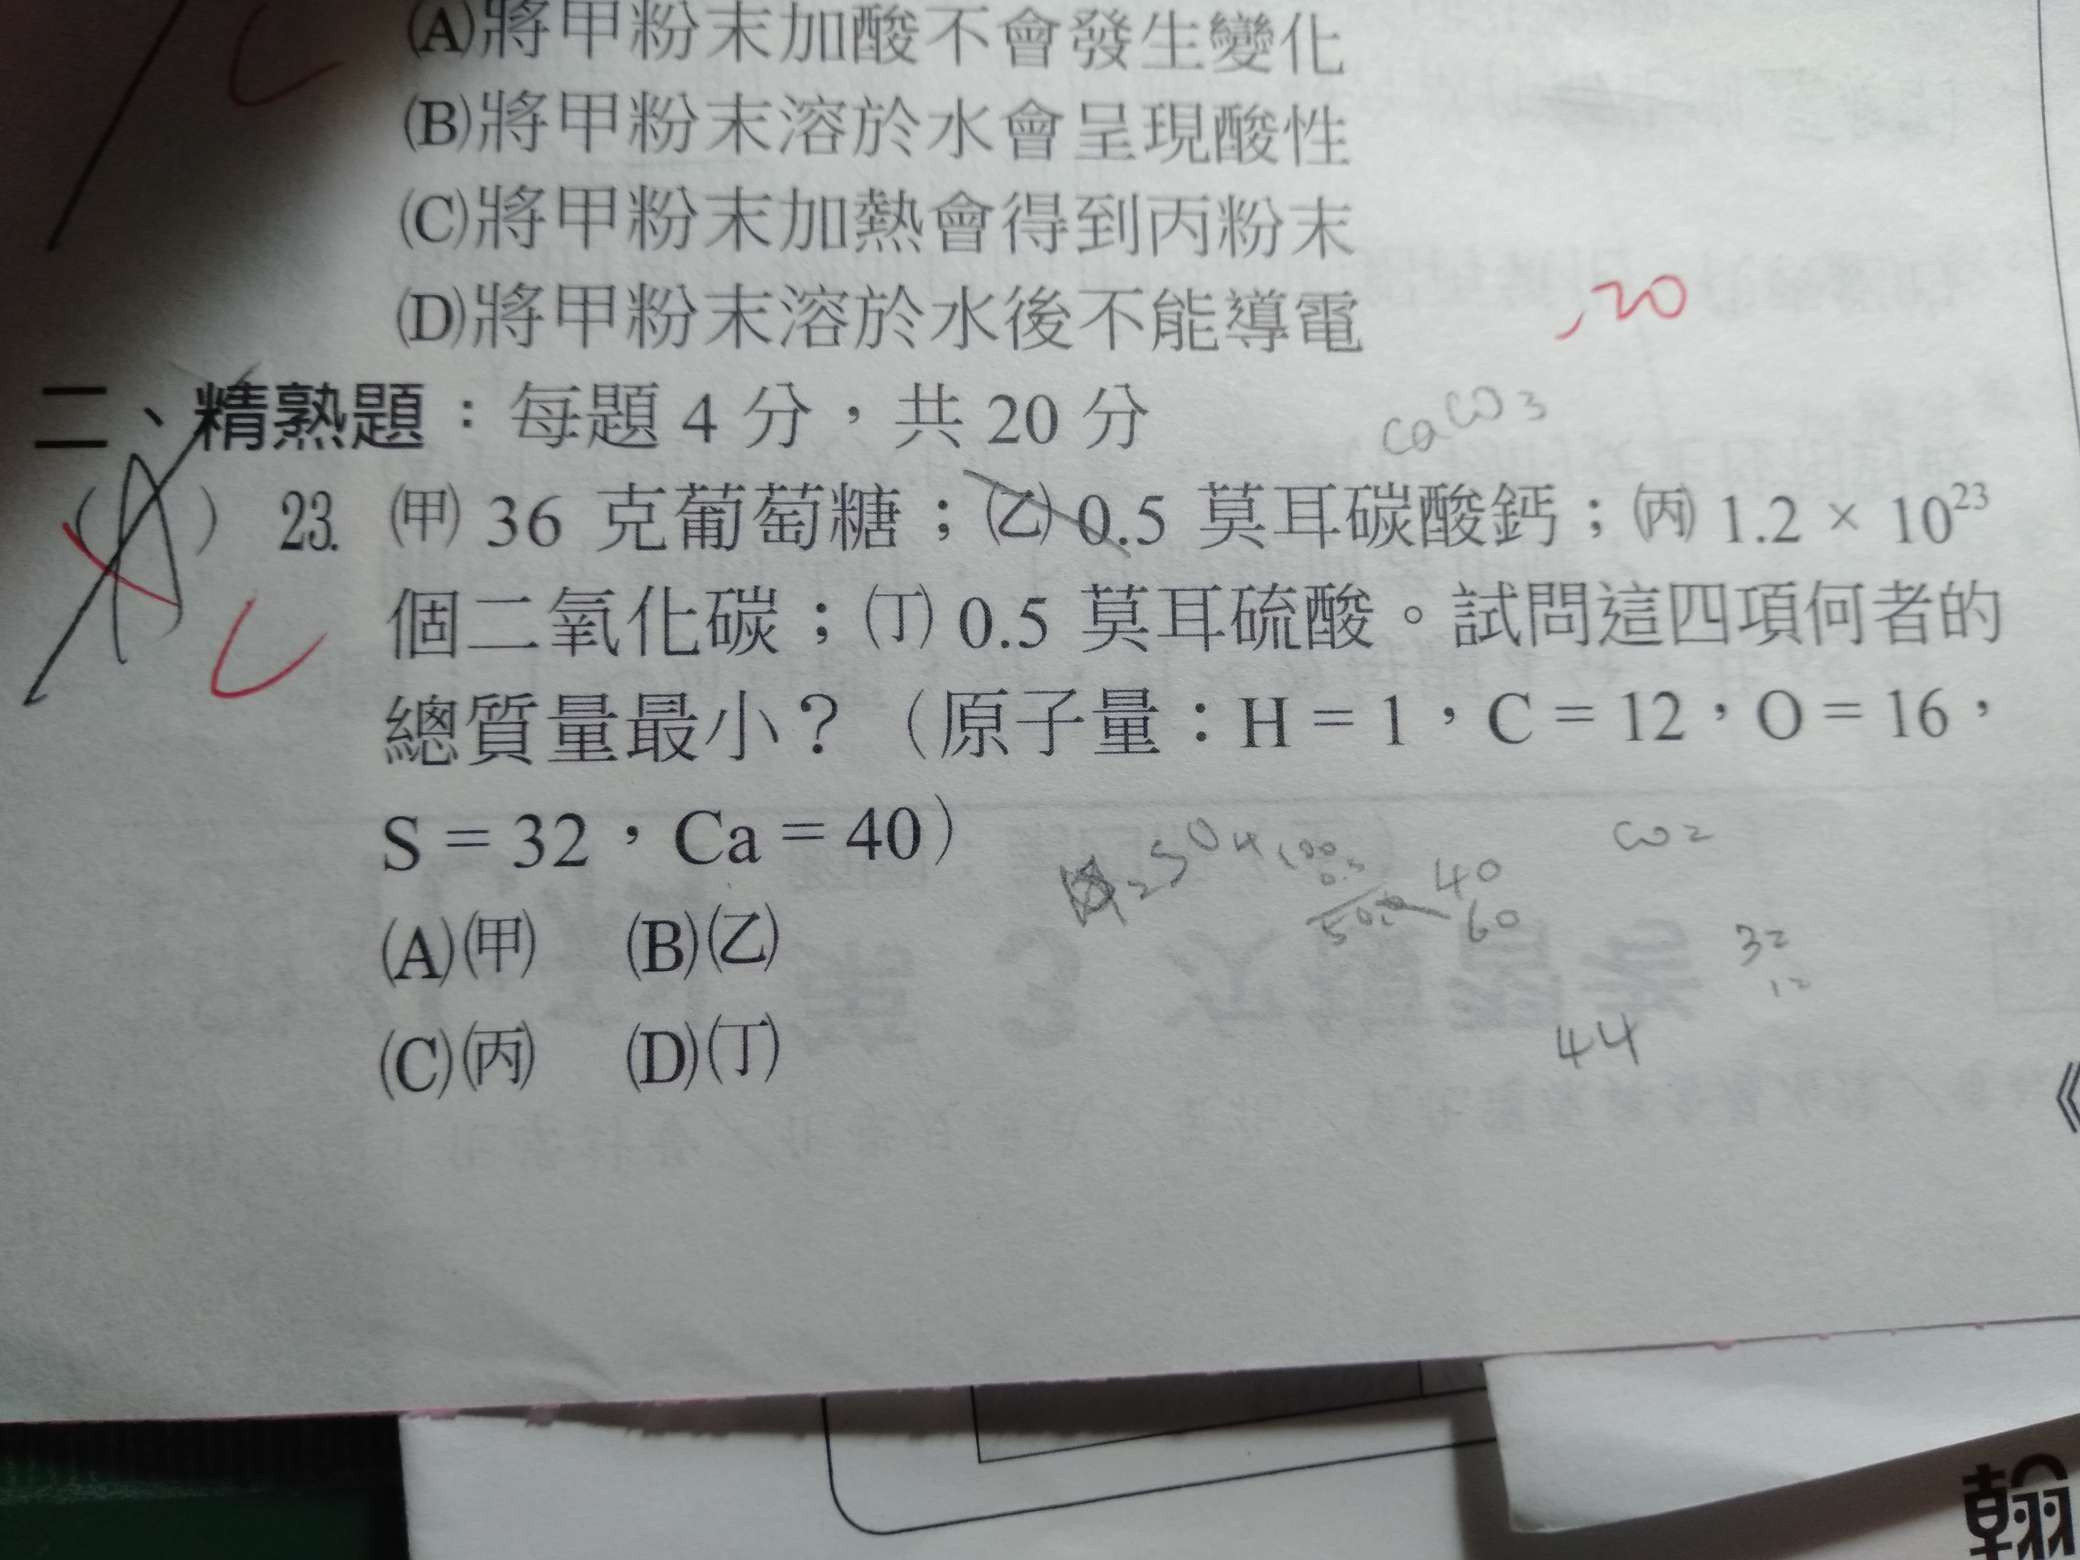 C
(A)將甲粉末加酸不會發生變化
(B)將甲粉末溶於水會呈現酸性
(C)將甲粉末加熱會得到丙粉末
(D)將甲粉末溶於水後不能導電
20
二、精熟題：每題 4 分，共 20 分
CaCO3
(A) 23. ㈙ 36 克葡萄糖；㈚ 0.5 莫耳碳酸鈣；㈛ 1.2 × 10²³
個二氧化碳；㈜ 0.5 莫耳硫酸。試問這四項何者的
C
總質量最小？（原子量：H = 1，C = 12，O = 16，
S = 32，Ca = 40）
2SO4
100
0.5
50.0
40
60
CO2
32
12
44
(A)(甲) (B)(乙)
(C)(丙) (D)(丁)
《
翰